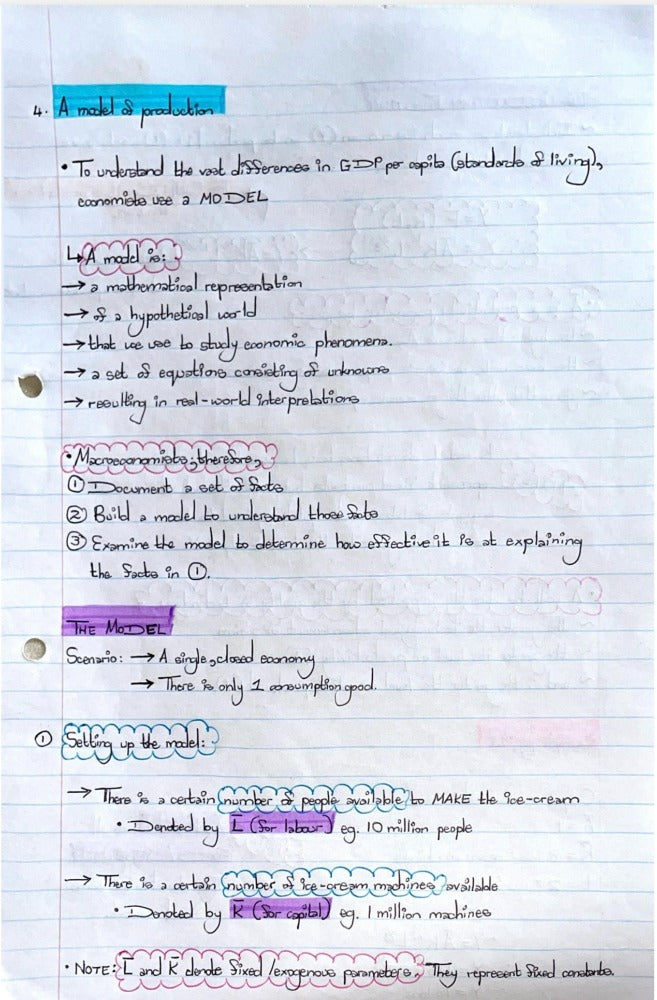 4. A model of production
• To understand the vast differences in GDP per capita (standards of living),
economists use a MODEL
↳ A model is:
→ a mathematical representation
→ of a hypothetical world
→ that we use to study economic phenomena.
→ a set of equations consisting of unknowns
→ resulting in real-world interpretations
• Macroeconomists, therefore,
① Document a set of facts
② Build a model to understand those facts
③ Examine the model to determine how effective it is at explaining
the facts in ①.
THE MODEL
Scenario: → A single, closed economy
→ There is only 1 consumption good.
① Setting up the model:
→ There is a certain number of people available to MAKE the ice-cream
• Denoted by L̄ (for labour) eg. 10 million people
→ There is a certain number of ice-cream machines available
• Denoted by K̄ (for capital) eg. 1 million machines
• NOTE: L̄ and K̄ denote fixed/exogenous parameters. They represent fixed constants.